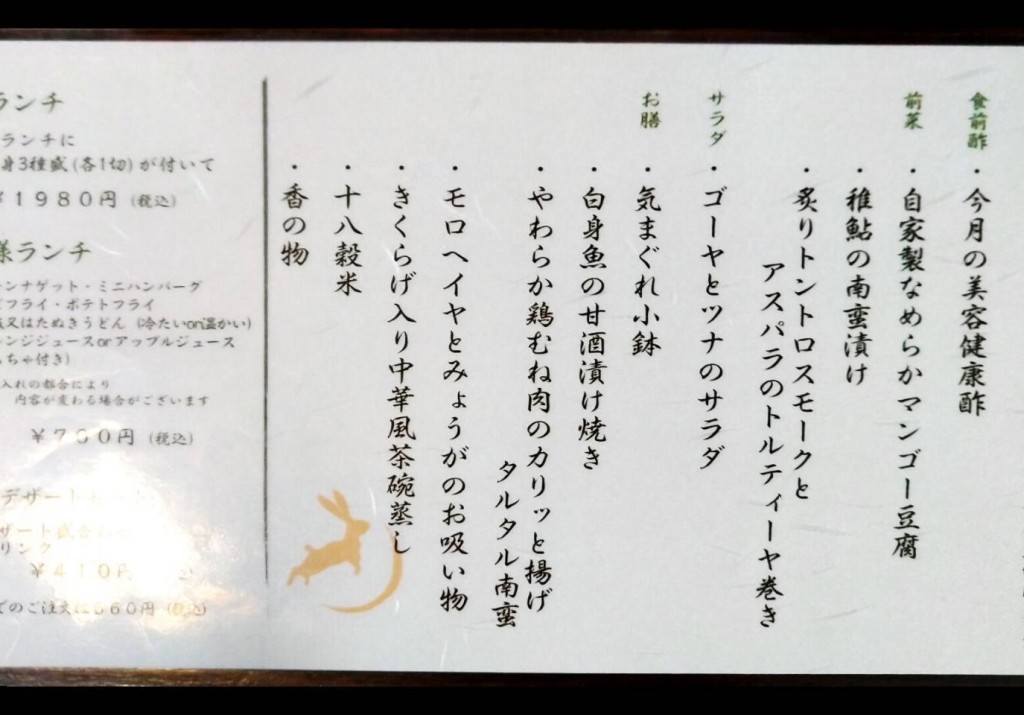 食前酢
・今月の美容健康酢
前菜
・自家製なめらかマンゴー豆腐
・稚鮎の南蛮漬け
・炙りトントロスモークと
アスパラのトルティーヤ巻き
サラダ
・ゴーヤとツナのサラダ
お膳
・気まぐれ小鉢
・白身魚の甘酒漬け焼き
・やわらか鶏むね肉のカリッと揚げ
タルタル南蛮
・モロヘイヤとみょうがのお吸い物
・きくらげ入り中華風茶碗蒸し
・十八穀米
・香の物
ランチ
ランチに
身3種盛(各1切)が付いて
¥1980円(税込)
様ランチ
ンナゲット・ミニハンバーグ
フライ・ポテトフライ
又はたぬきうどん(冷たいor温かい)
ンジジュースorアップルジュース
ちゃ付き)
入れの都合により
内容が変わる場合がございます
¥760円(税込)
デザート
ザート盛合わ
リンク
¥410円
でのご注文は560円(税込)